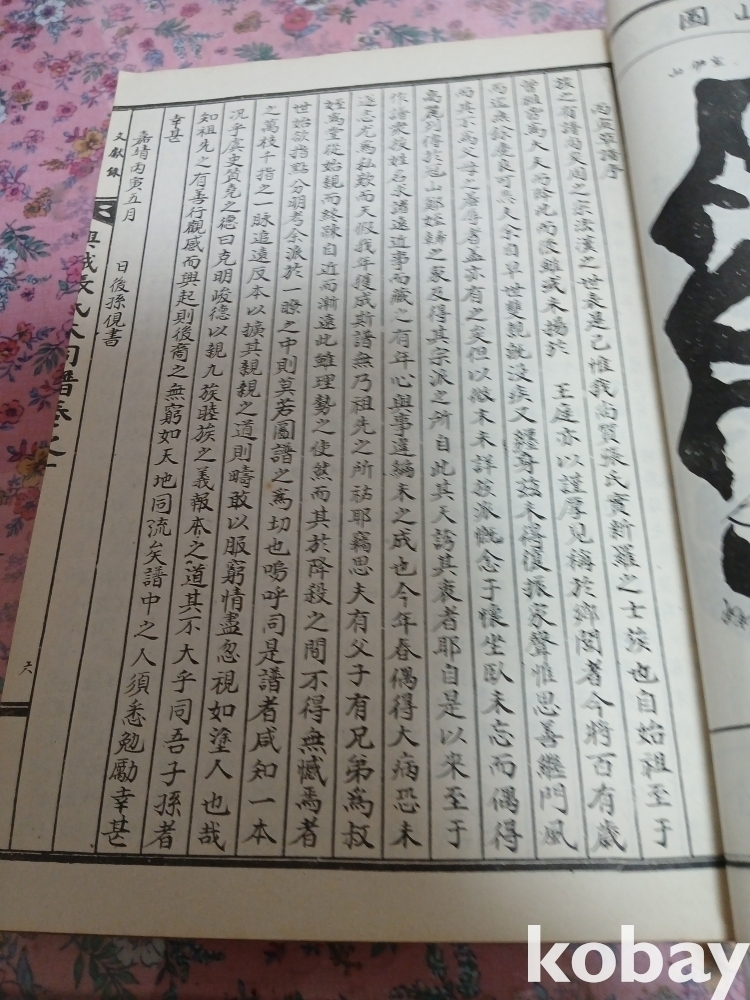 山圖
丙寅舊譜序
族之有譜尙矣周之宗法漢之世表是已惟我尙質張氏實新羅之士族也自始祖至于
曾祖皆爲大夫而降此而後雖或未揚於 王庭亦以謹厚見稱於鄉閭者今將百有歲
而益無餘慶哀哉夫余自早世雙親旣沒疾又纏身茲未得復振家聲惟思善繼門風
而其不爲父母之羞辱者盖亦有之矣但以微末未詳族派慨念于懷坐臥未忘而偶得
高萬列傳於冠山鄒姪婦之家及得其宗派之所自此其天誘其衷者耶自是以來至于
作譜裒族姓名求諸遠近事而藏之有年心與事違編未之成也今年春偶得大病恐未
遂志尤爲私歎而天假我年獲成斯譜無乃祖先之所祜耶竊思夫有父子有兄弟爲叔
姪爲堂從始親而終疎自近而漸遠此雖理勢之使然而其於降殺之間不得無憾焉者
世始欲指點分明考余派於一瞭之中則莫若圖譜之爲切也嗚呼同是譜者咸知一本
之萬枝千指之一脉追遠反本以擴其親親之道則疇敢以服窮情盡忽視如塗人也哉
况乎虞史贊堯之德曰克明峻德以親九族睦族之義報本之道其不大乎同吾子孫者
知祖先之有善行觀感而興起則後裔之無窮如天地同流矣譜中之人須悉勉勵幸甚
幸甚
嘉靖丙寅五月 日後孫俔書
文獻錄
興城張氏大同譜卷之一
六
kobay